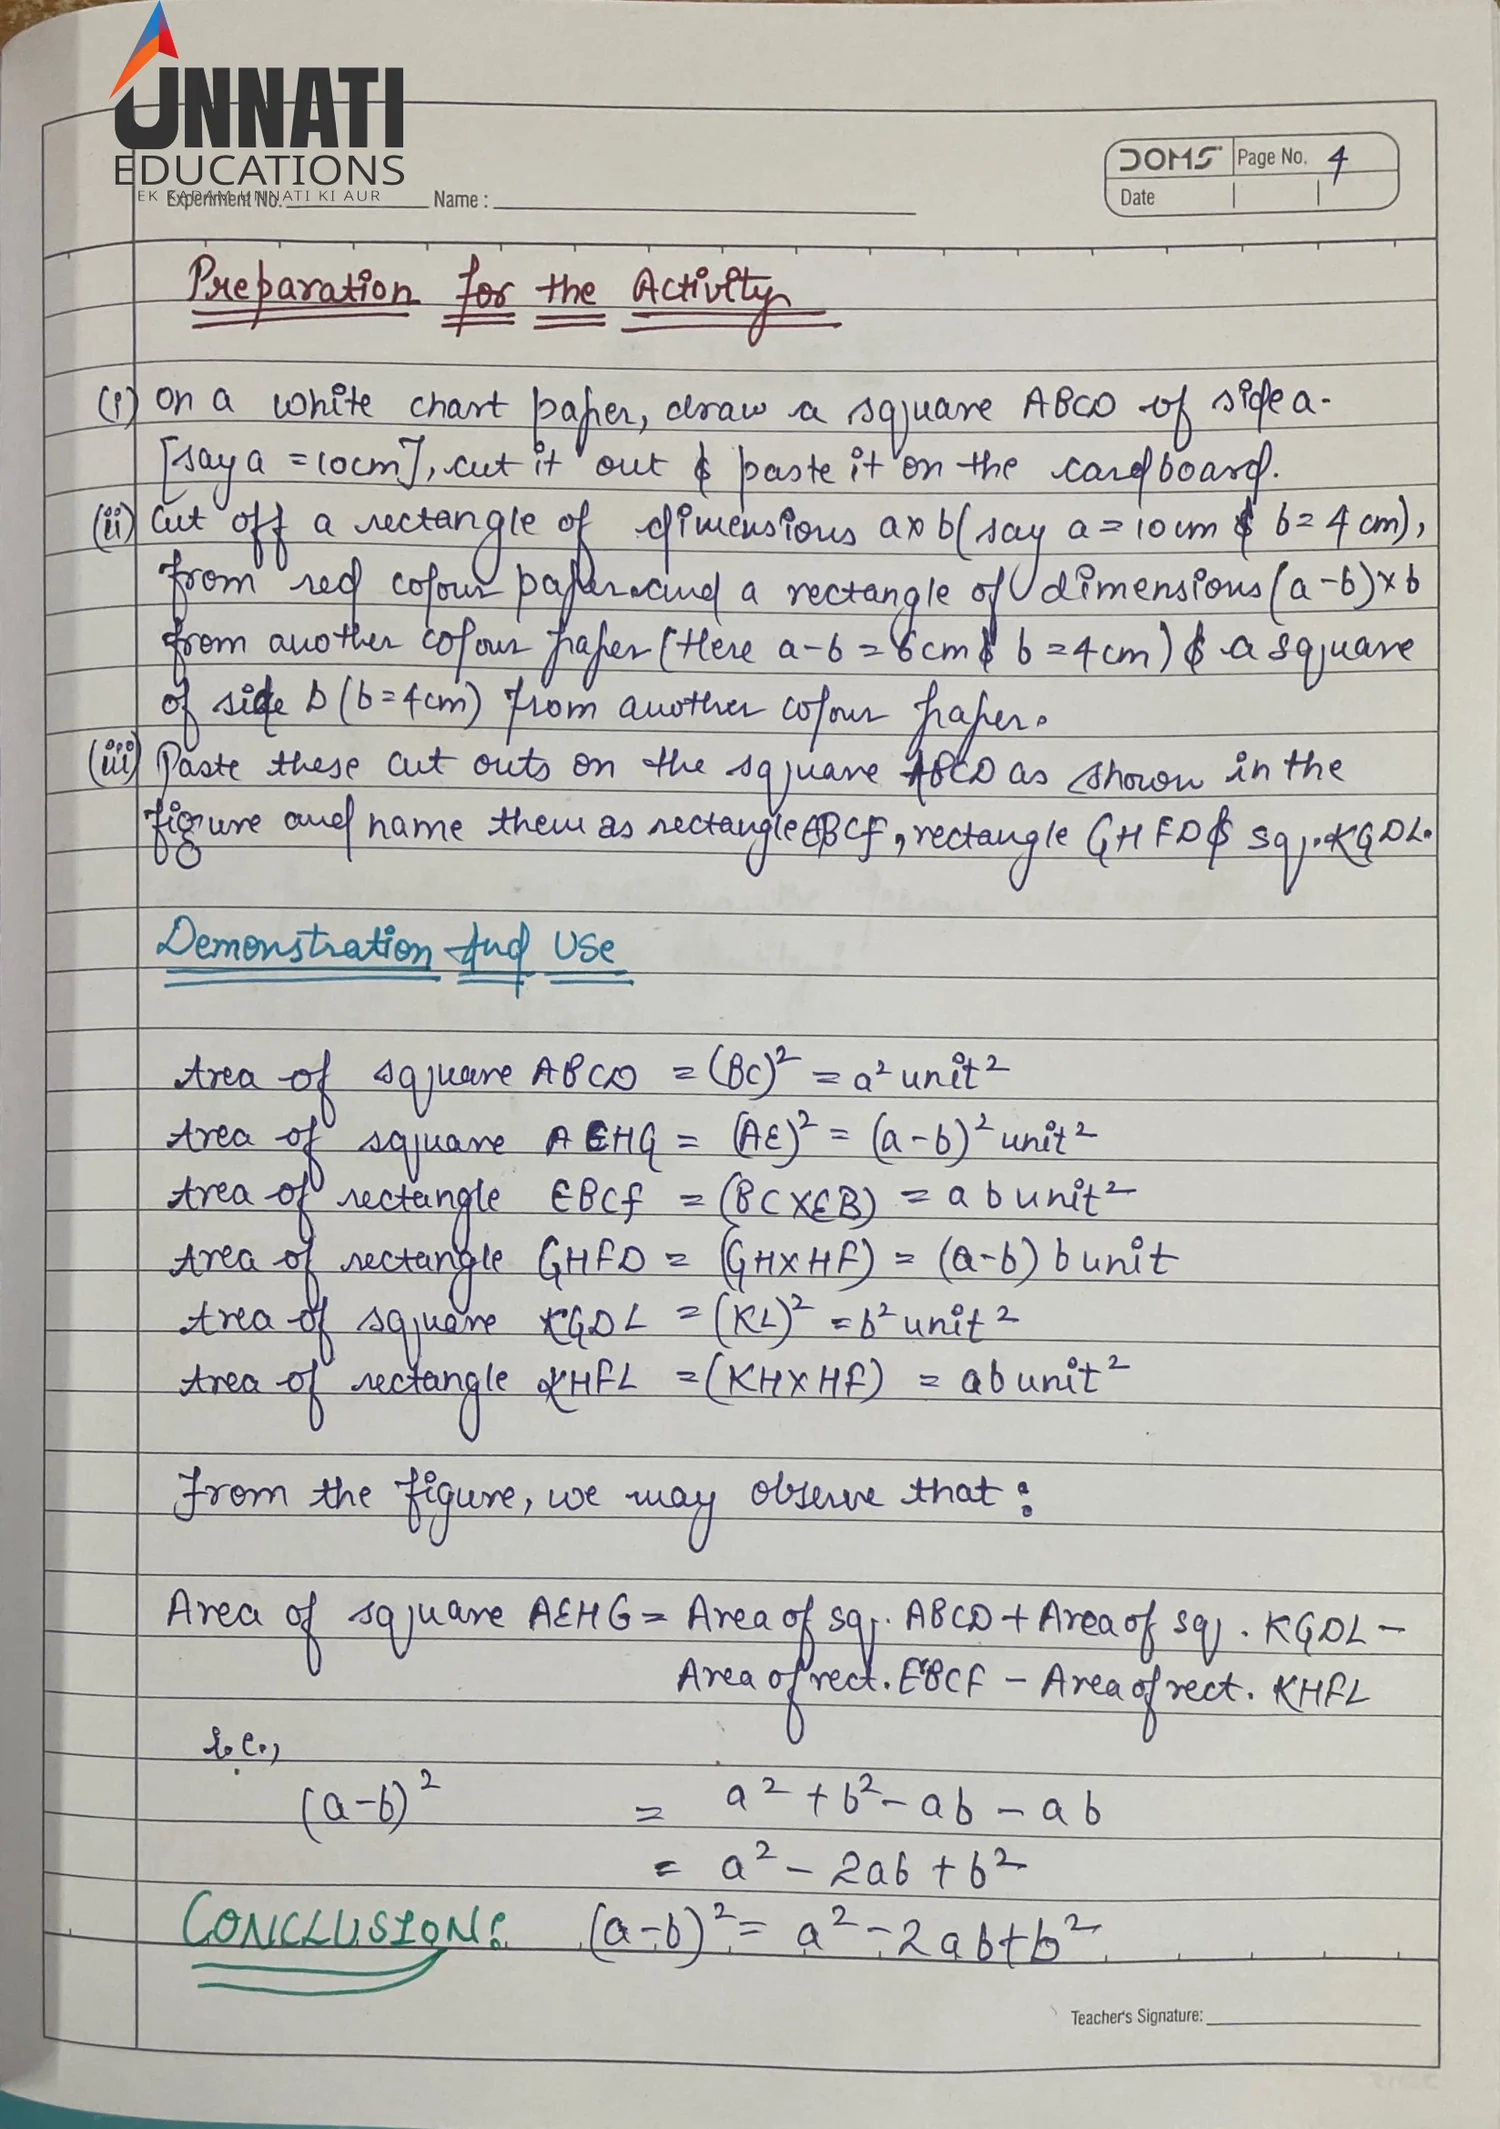 UNNATI
EDUCATIONS
EK KADAM UNNATI KI AUR
Experiment No. Name :
DOMS Page No. 4
Date
Preparation for the Activity
(i) On a white chart paper, draw a square ABCD of side a.
[say a = 10cm], cut it out & paste it on the cardboard.
(ii) Cut off a rectangle of dimensions a×b (say a = 10 cm & b = 4 cm),
from red colour paper and a rectangle of dimensions (a-b)×b
from another colour paper (Here a-b = 6cm & b = 4cm) & a square
of side b (b=4cm) from another colour paper.
(iii) Paste these cut outs on the square ABCD as shown in the
figure and name them as rectangle EBCF, rectangle GHFD & sq. KGDL.
Demonstration And Use
Area of square ABCD = (BC)² = a² unit²
Area of square AEHG = (AE)² = (a-b)² unit²
Area of rectangle EBCF = (BC×EB) = ab unit²
Area of rectangle GHFD = (GH×HF) = (a-b) b unit
Area of square KGDL = (KL)² = b² unit²
Area of rectangle KHFL = (KH×HF) = ab unit²
From the figure, we may observe that :
Area of square AEHG = Area of sq. ABCD + Area of sq. KGDL -
Area of rect. EBCF - Area of rect. KHFL
i.e.,
(a-b)² = a² + b² - ab - ab
= a² - 2ab + b²
CONCLUSION: (a-b)² = a² - 2ab + b²
Teacher's Signature: